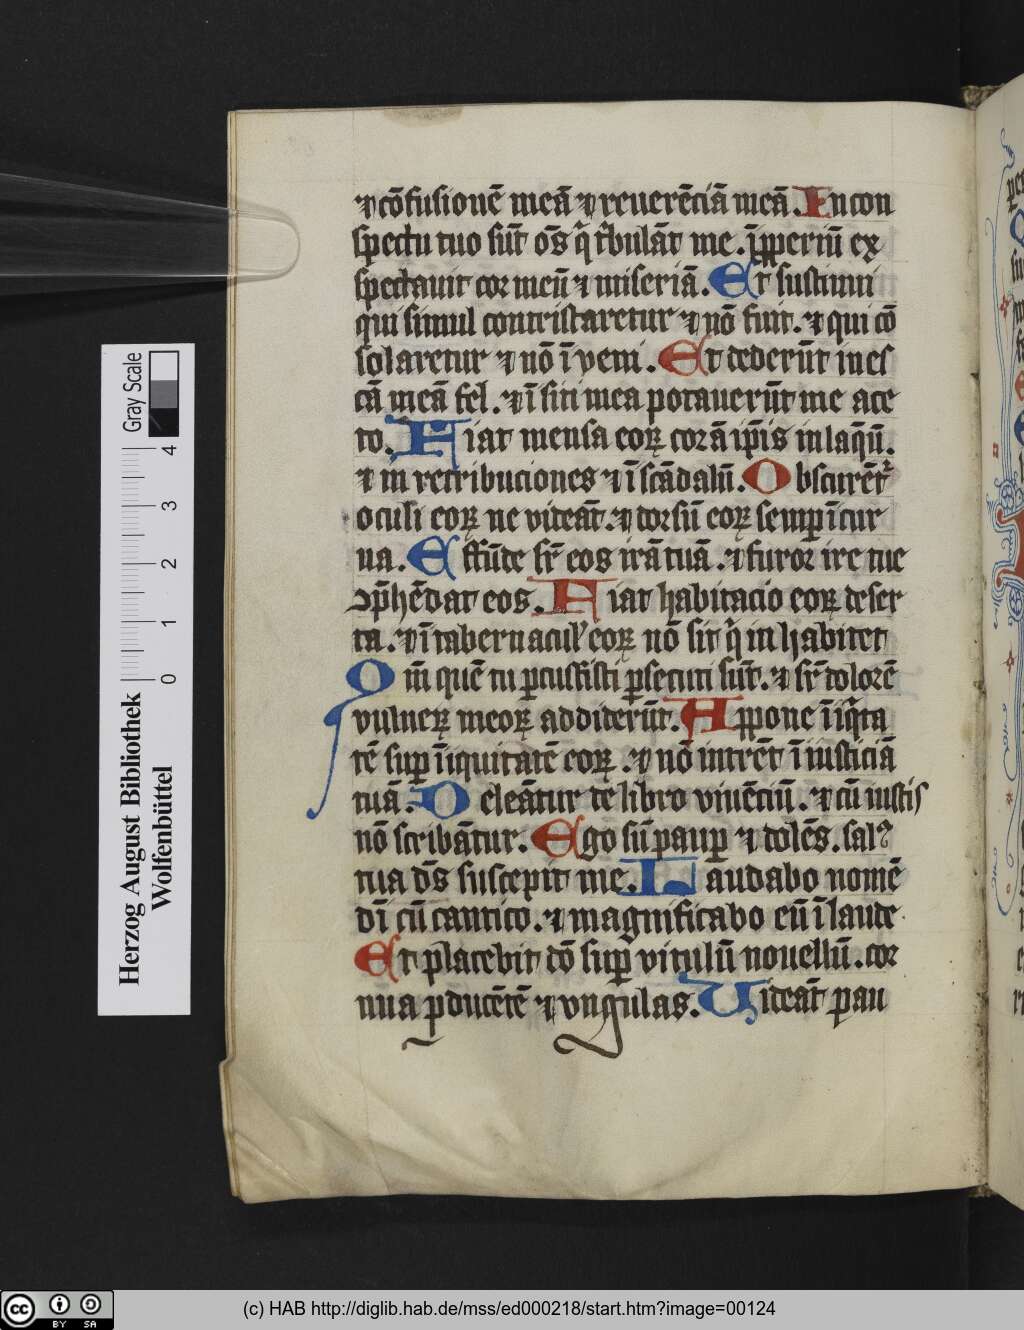 ⁊ cōfusionē meā ⁊ reuerēciā meā. In con
spectu tuo sūt oēs q̄ t̄bulāt me. īpꝓperiū ex
spectauit cor meū ⁊ miseriā. Et sustinui
qui simul contristaretur ⁊ nō fuit. ⁊ qui cō
solaretur ⁊ nō īveni. Et dederūt in es
cā meā fel. ⁊ ī siti mea potauerūt me ace
to. Fiat mensa eoꝝ corā ip̄is in laq̄ū.
⁊ in retribuciones ⁊ ī scādalū. Obscurēt᷑
oculi eoꝝ ne videāt. ⁊ dorsū eoꝝ semꝑ īcur
ua. Effūde sr̄ eos irā tuā. ⁊ furor ire tue
ꝯp̄hēdat eos. Fiat habitacio eoꝝ deser
ta. ⁊ ī tabernacul' eoꝝ nō sit q̄ inhabitet
Qm̄ quē tu ꝑcussisti ꝑsecuti sūt. ⁊ sr̄ dolorē
vulneꝝ meoꝝ addiderūt. Appone īiq̄ta
tē suꝑ īiquitatē eoꝝ. ⁊ nō intrēt ī iusticiā
tuā. Deleātur de libro viuēciū. ⁊ cū iustis
nō scribātur. Ego sū pauꝑ ⁊ dolēs. sal᷑
tua dēs suscepit me. Laudabo nomē
dī cū cantico. ⁊ magnificabo eū ī laude
Et placebit dō suꝑ vitulū nouellū. cor
nua ꝓducētē ⁊ vngulas. Videāt pau
Herzog August Bibliothek
Wolfenbüttel
Gray Scale
0 1 2 3 4
(c) HAB http://diglib.hab.de/mss/ed000218/start.htm?image=00124
cc BY SA